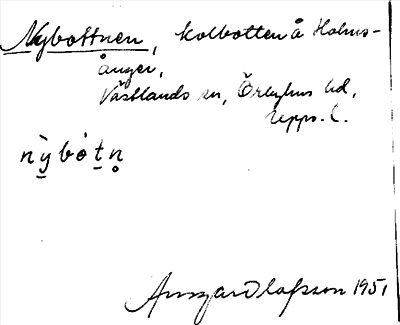 Nybottnen, kolbotten å Holms-
ånger,
Västlands sn, Örbyhus hd,
Upps. l.
nỳ̲bót̲n̥
Ansgar Olafsson 1951